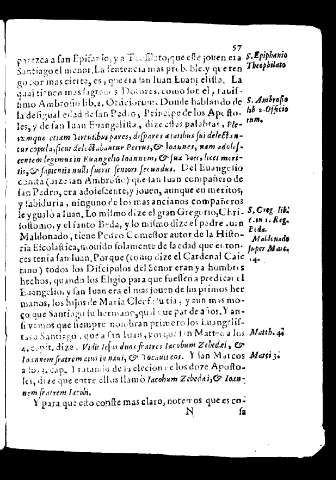 57
parezca a san Epifanio, y a Teofilato, que este joven era
Santiago el menor. La sentencia mas probable, y que ten
go por mas cierto, es, que era san Iuan Euangelista. La
qual tienen mas graves Dotores, como son el
simo Ambrosio lib. 2. Oficiorum. Donde hablando de
la desigual edad de san Pedro, Principe de los Aposto-
les, y de san Iuan Euangelista, dize estas palabras, Ple-
rumque etiam virtutibus pares, dispares ætatibus sui delectan-
tur copula, sicut delectabantur Petrus, & Ioannes, nam adoles-
centem legimus in Euangelio Ioannem, & sua voce, licet meri-
tis, & sapientia nulli fuerit seniorum secundus. Del Euangelio
consta (dize san Ambrosio) que san Iuan compañero de
san Pedro, era adolescente, y joven, aunque en meritos,
y sabiduria, ninguno de los mas ancianos compañeros
le ygualò a Iuan. Lo mismo dize el gran Gregorio, Chri-
sostomo, y el santo Beda, y lo mismo dize el padre Iuan
Maldonado, tiene Pedro Comestor autor de la Histo-
ria Escolastica, movido solamente de la edad que enton-
ces tenia san Iuan. Porque (como dize el Cardenal Caie
tano) todos los Discipulos del Señor eran ya hombres
hechos, quando los Eligio para que fuessen a predicar el
Euangelio, y san Iuan era el mas joven de los primos her
manos, los hijos de Maria Cleofe, y Iuan, y aun mas mo-
ço que Santiago su hermano, que de que par de años. Y an-
si vemos que siempre nombran primero los Euangelis-
tas a Santiago, que a san Iuan, porque san Matteo a los
4. capit. dize. Vidit Iesus duos fratres Iacobum Zebedæi, &
Ioannem fratrem eius in navi, & vocavit eos. Y san Marcos
a los 3. cap. tratando de la elecion de los doze Aposto-
les, dize que entre ellos llamò Iacobum Zebedæi, & Ioan-
nem fratrem Iacobi.
Y para que esto conste mas claro, notemos que es co-
N sa
S. Epiphanio
Theophilato
S. Ambrosio
lib 2. Officio
rum.
S. Greg. lib.
Reg.
Beda.
Maldonado
super Marc.
14.
Matth. 4.
Marci 3.